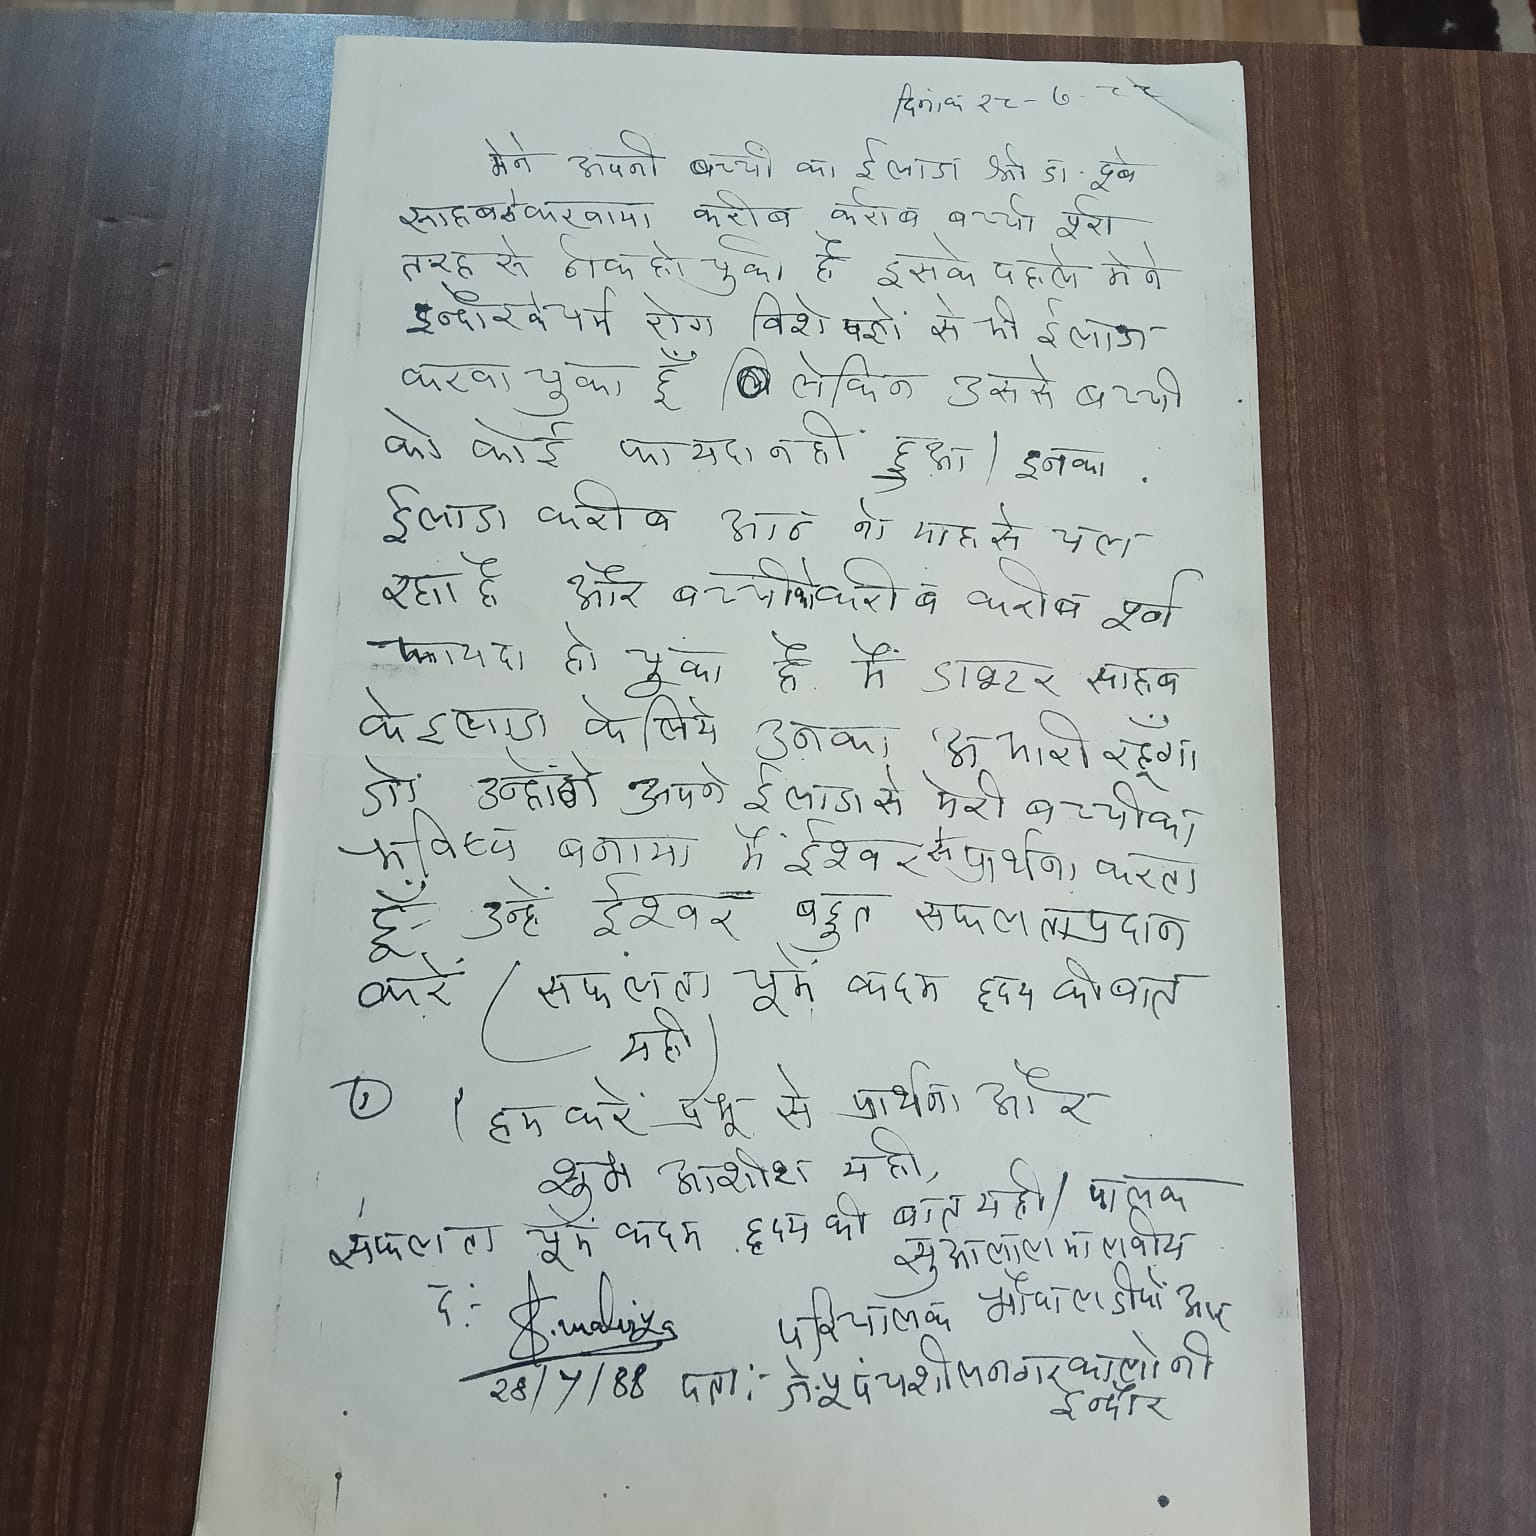 दिनांक २८-७-८८
मेने अपनी बच्ची का ईलाज श्री डा. दूबे
साहब से करवाया करीब करीब बच्ची पूरी
तरह से ठीक हो चुकी है इसके पहले मेने
इन्दौर के चर्म रोग विशेषज्ञों से भी ईलाज
करवा चुका हूँ लेकिन उससे बच्ची
को कोई फायदा नहीं हुआ। इनका
ईलाज करीब आठ नो माह से चल
रहा है और बच्ची को करीब करीब पूर्ण
फायदा हो चुका है. मैं डाक्टर साहब
के इलाज के लिये उनका आभारी रहूँगा
जो उन्होंने अपने ईलाज से मेरी बच्ची का
भविष्य बनाया मैं ईश्वर से प्रार्थना करता
हूँ उन्हें ईश्वर बहुत सफलता प्रदान
करें (सफलता चूमें कदम हृदय की बात
यही)
① । हम करें प्रभू से प्रार्थना और
शुभ आशीश यही,
सफलता चूमें कदम हृदय की बात यही। पालक
सुआलाल मालवीय
द:- परिचालक भोपाल डीपों
28/7/88 पता:- जे.पू पंचशील नगर कालोनी
ईन्दौर